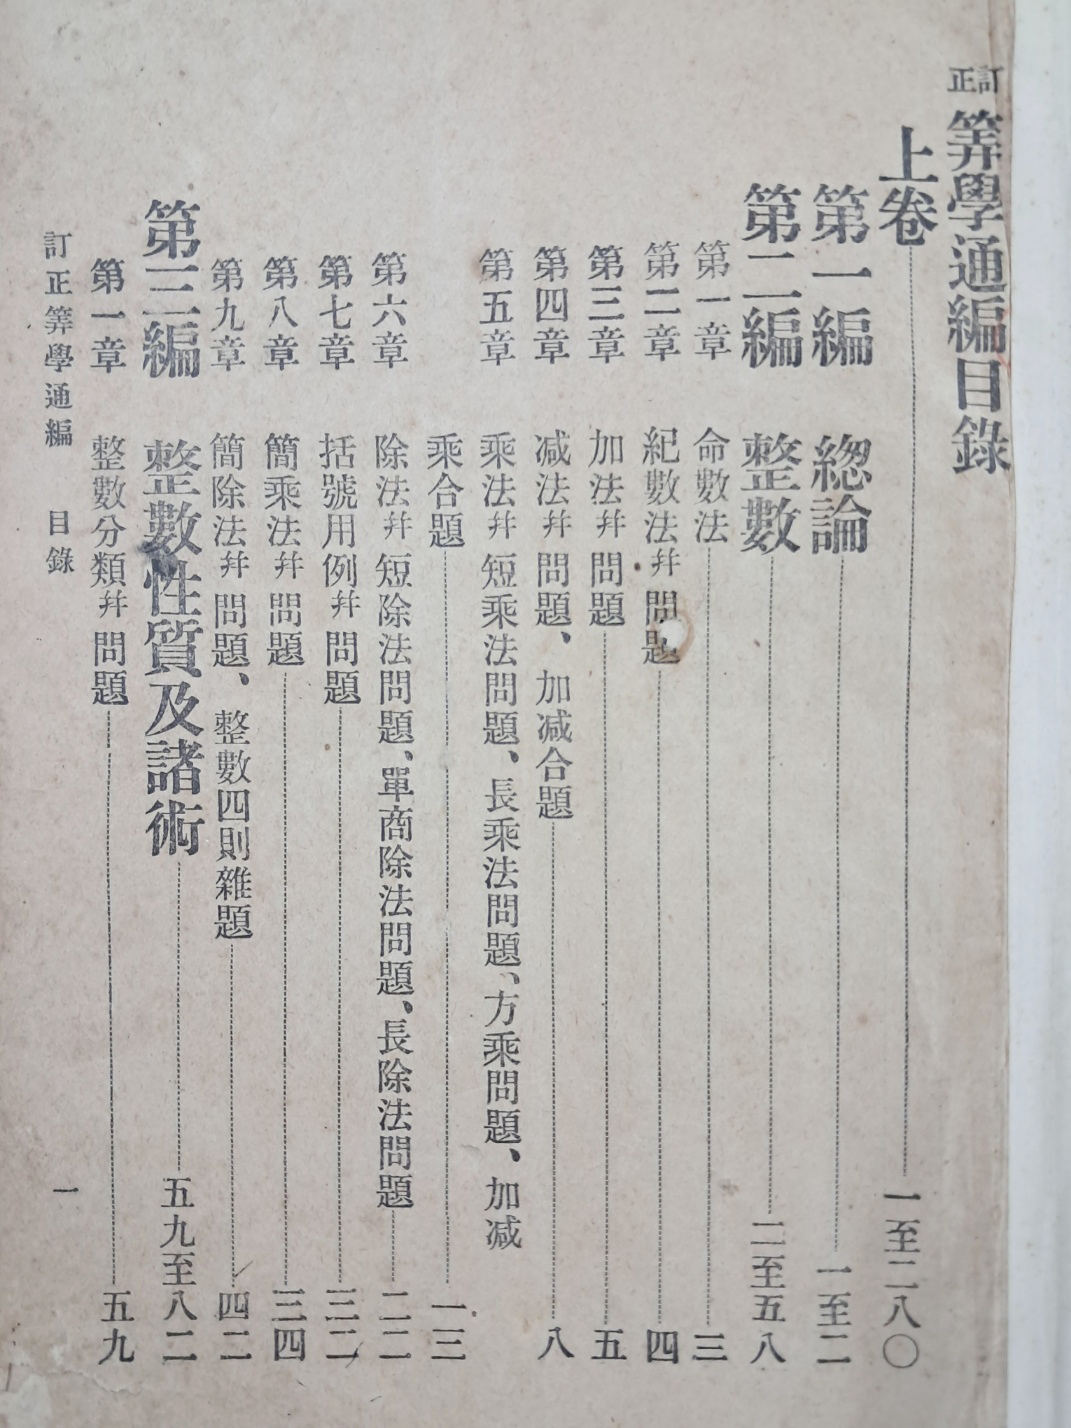 訂正筭學通編目錄
上卷 一至二八〇
第一編 緫論 一至二
第二編 整數 二至五八
第一章 命數法 三
第二章 紀數法幷問題 四
第三章 加法幷問題 五
第四章 減法幷問題、加減合題 八
第五章 乘法幷短乘法問題、長乘法問題、方乘問題、加減
乘合題 一三
第六章 除法幷短除法問題、單商除法問題、長除法問題 二二
第七章 括號用例幷問題 三二
第八章 簡乘法幷問題 三四
第九章 簡除法幷問題、整數四則雜題 四二
第三編 整數性質及諸術 五九至八二
第一章 整數分類幷問題 五九
訂正筭學通編 目錄 一